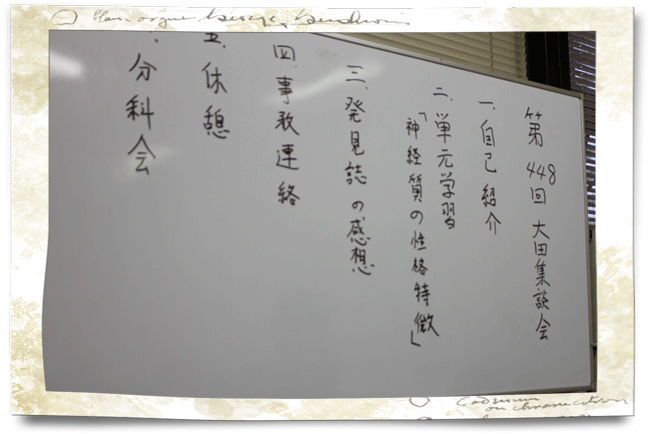 第448回 大田集談会
一、自己紹介
二、単元学習
「神経質の性格特徴」
三、発見誌の感想
四、事務連絡
五、休憩
、分科会